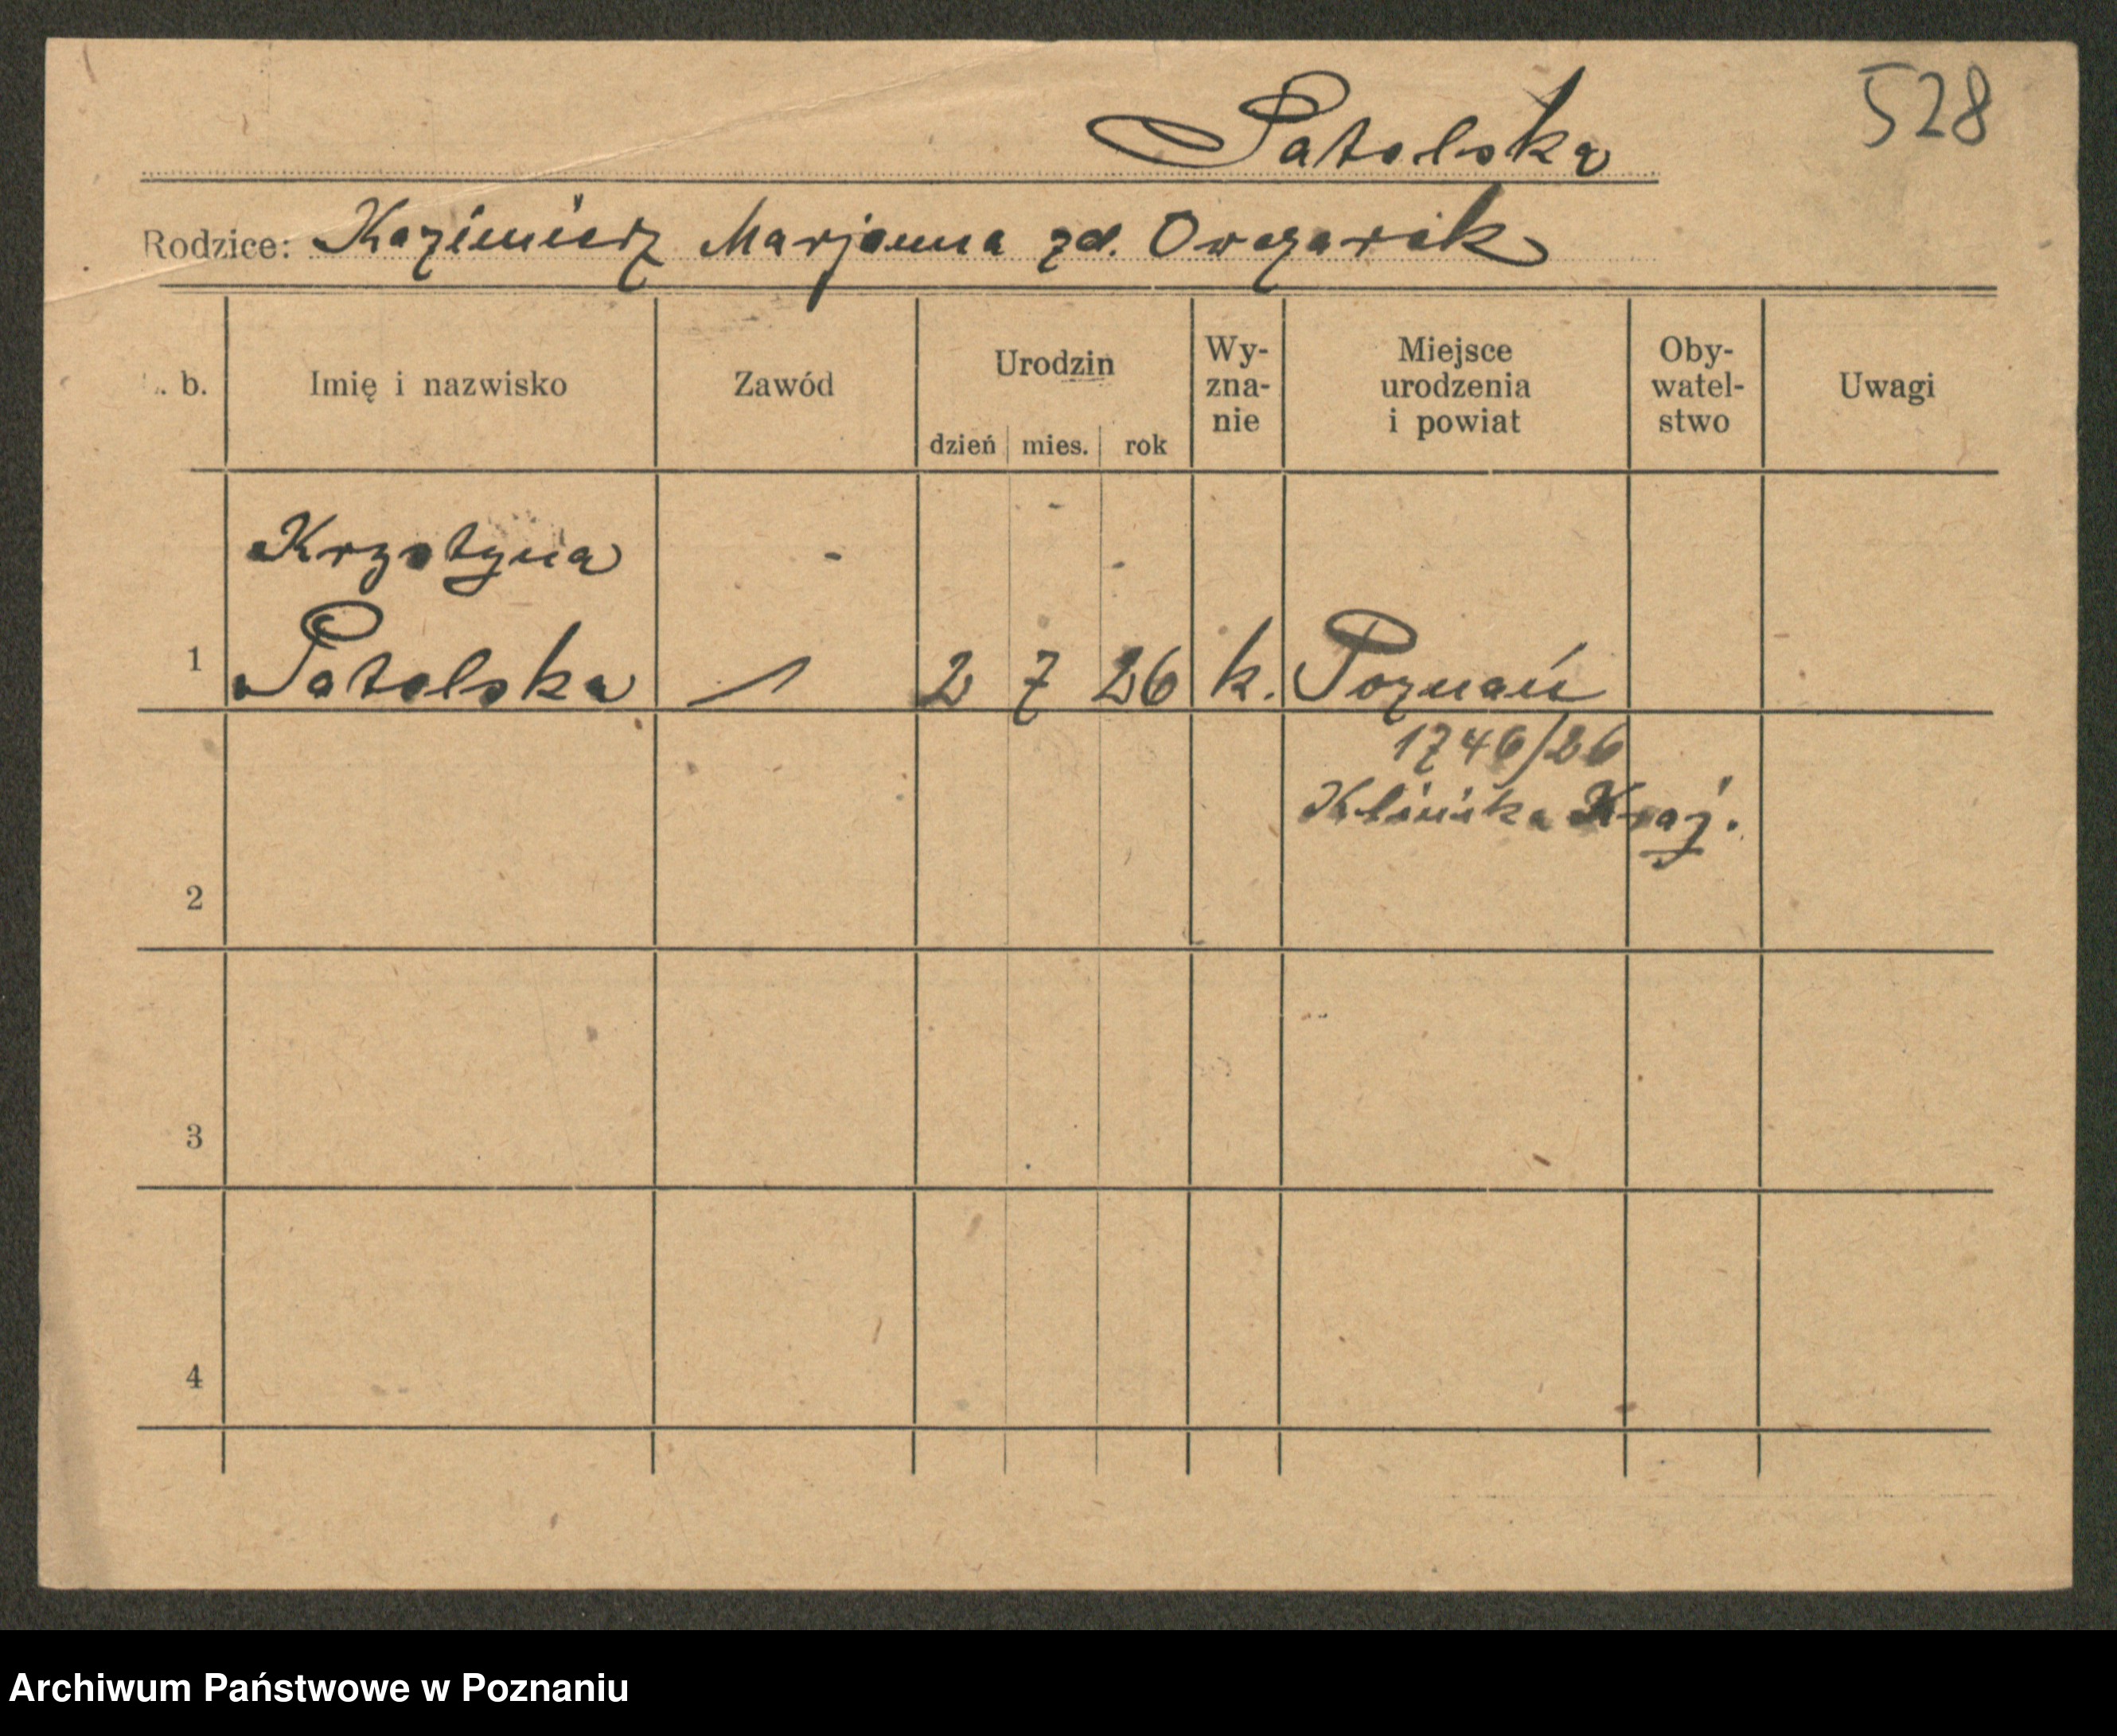 528
Patolska
Rodzice: Kazimierz Marjanna zd. Owczarek
b. Imię i nazwisko Zawód Urodzin dzień mies. rok Wy-zna-nie Miejsce urodzenia i powiat Oby-watel-stwo Uwagi
Krystyna
1 Patolska 2 7 26 k. Poznań
1746/26
Klinika Kraj.
2
3
4
Archiwum Państwowe w Poznaniu